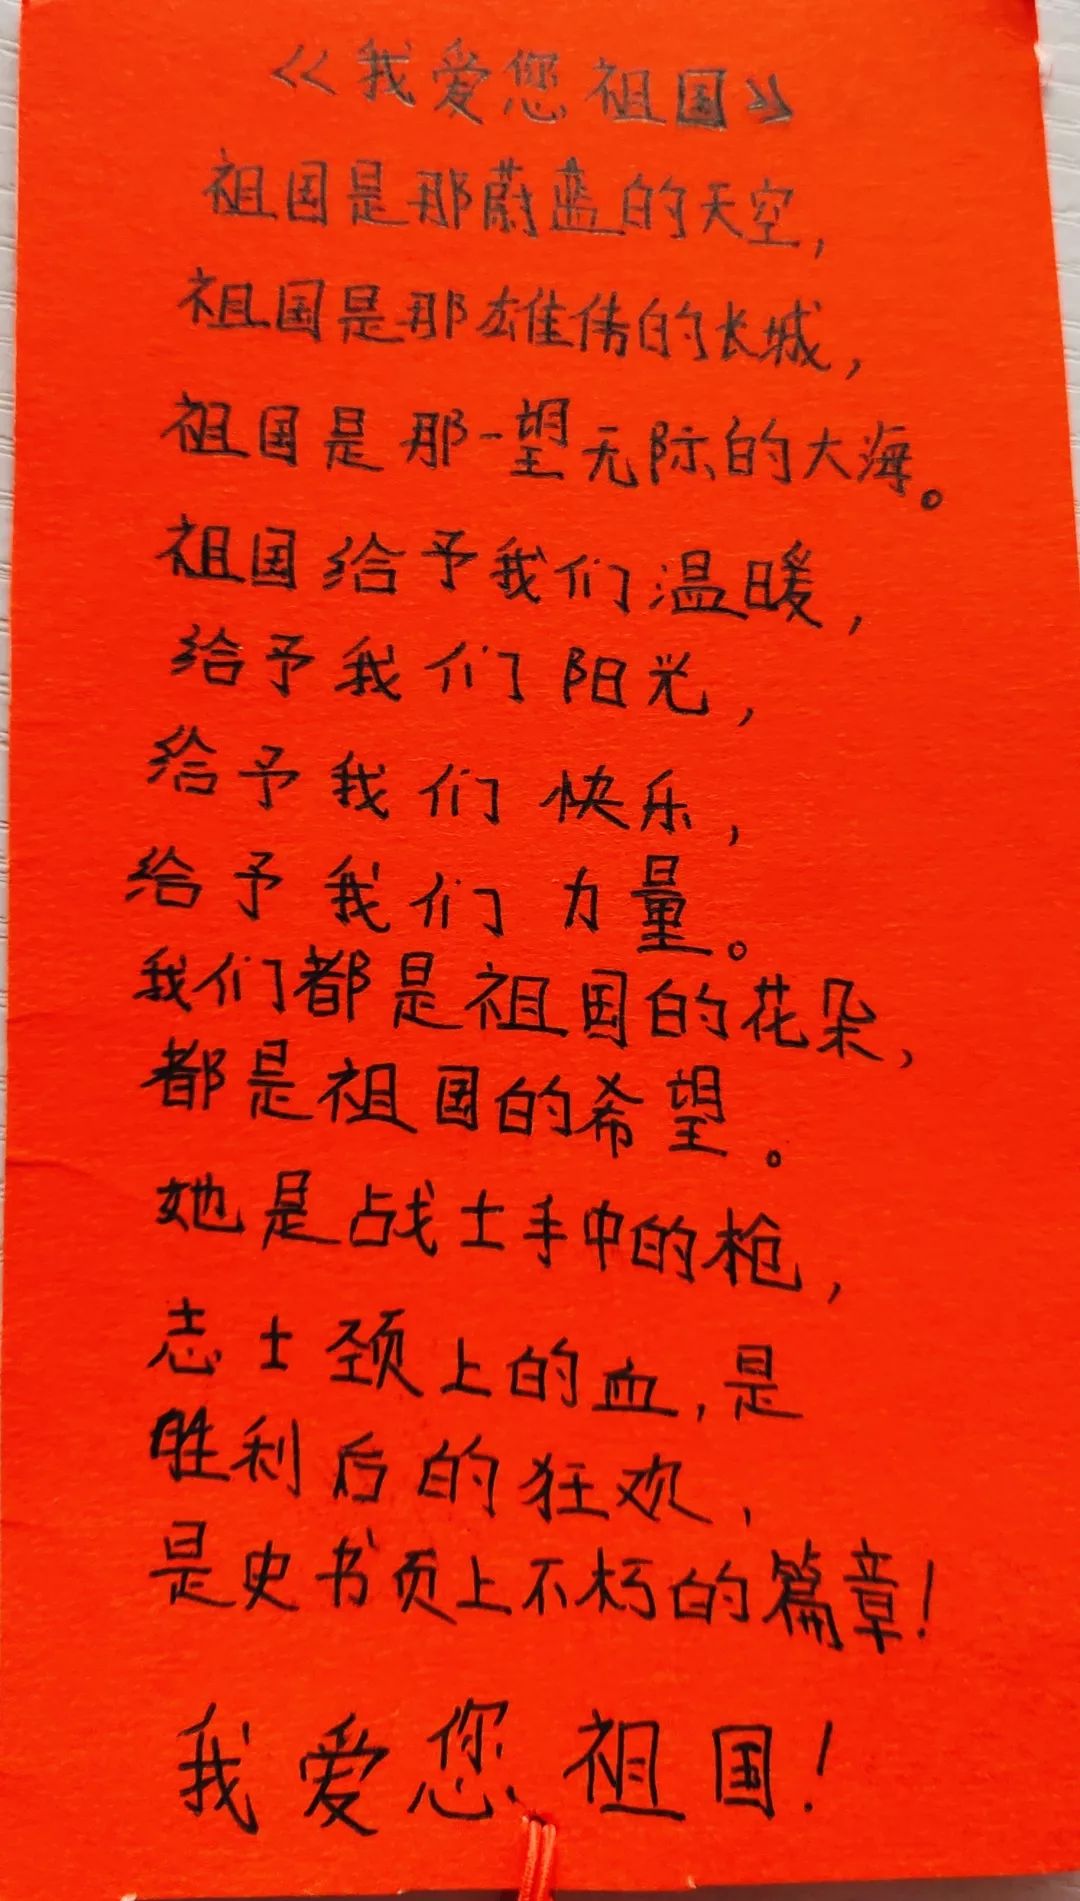 《我爱您祖国》
祖国是那蔚蓝的天空，
祖国是那雄伟的长城，
祖国是那一望无际的大海。
祖国给予我们温暖，
给予我们阳光，
给予我们快乐，
给予我们力量。
我们都是祖国的花朵，
都是祖国的希望。
她是战士手中的枪，
志士颈上的血，是
胜利后的狂欢，
是史书页上不朽的篇章！
我爱您祖国！